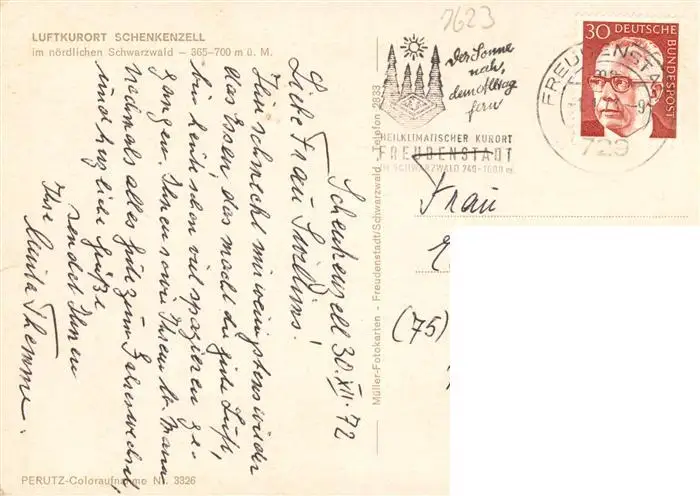 LUFTKURORT SCHENKENZELL
im nördlichen Schwarzwald – 365-700 m ü. M.
Schenkenzell 30. XII. 72
Liebe Frau
Hier schmeckt mir wenigstens wieder
das Essen, das macht die gute Luft,
bin heute schon viel spazieren ge-
gangen, Ihnen sowie Ihrem lb. Mann
nochmals alles Gute zum Jahreswechsel,
und herzliche Grüße
sendet Ihnen
Ihre
Themme.
PERUTZ-Coloraufnahme Nr. 3326
Müller-Fotokarten - Freudenstadt/Schwarzwald, Telefon 2833
7623
Der Sonne
nah,
dem Alltag
fern
HEILKLIMATISCHER KURORT
FREUDENSTADT
IM SCHWARZWALD 740-1000 m
FREUDENSTA
729
30 DEUTSCHE
BUNDESPOST
Frau
(75)